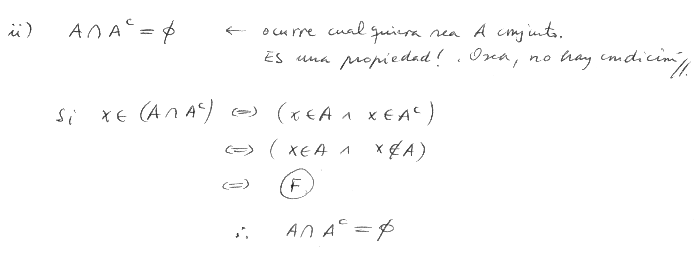 ii) A ∩ Aᶜ = ϕ ← ocurre cualquiera sea A conjunto.
Es una propiedad! . Osea, no hay condición //.
Si x ∈ (A ∩ Aᶜ) ⟺ (x ∈ A ∧ x ∈ Aᶜ)
⟺ (x ∈ A ∧ x ∉ A)
⟺ F
∴ A ∩ Aᶜ = ϕ